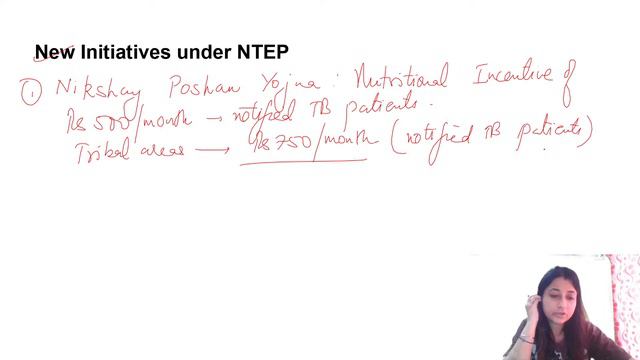 New Initiatives under NTEP
① Nikshay Poshan Yojna : Nutritional Incentive of
Rs 500/month → notified TB patients.
Tribal areas → Rs 750/month (notified TB patients)